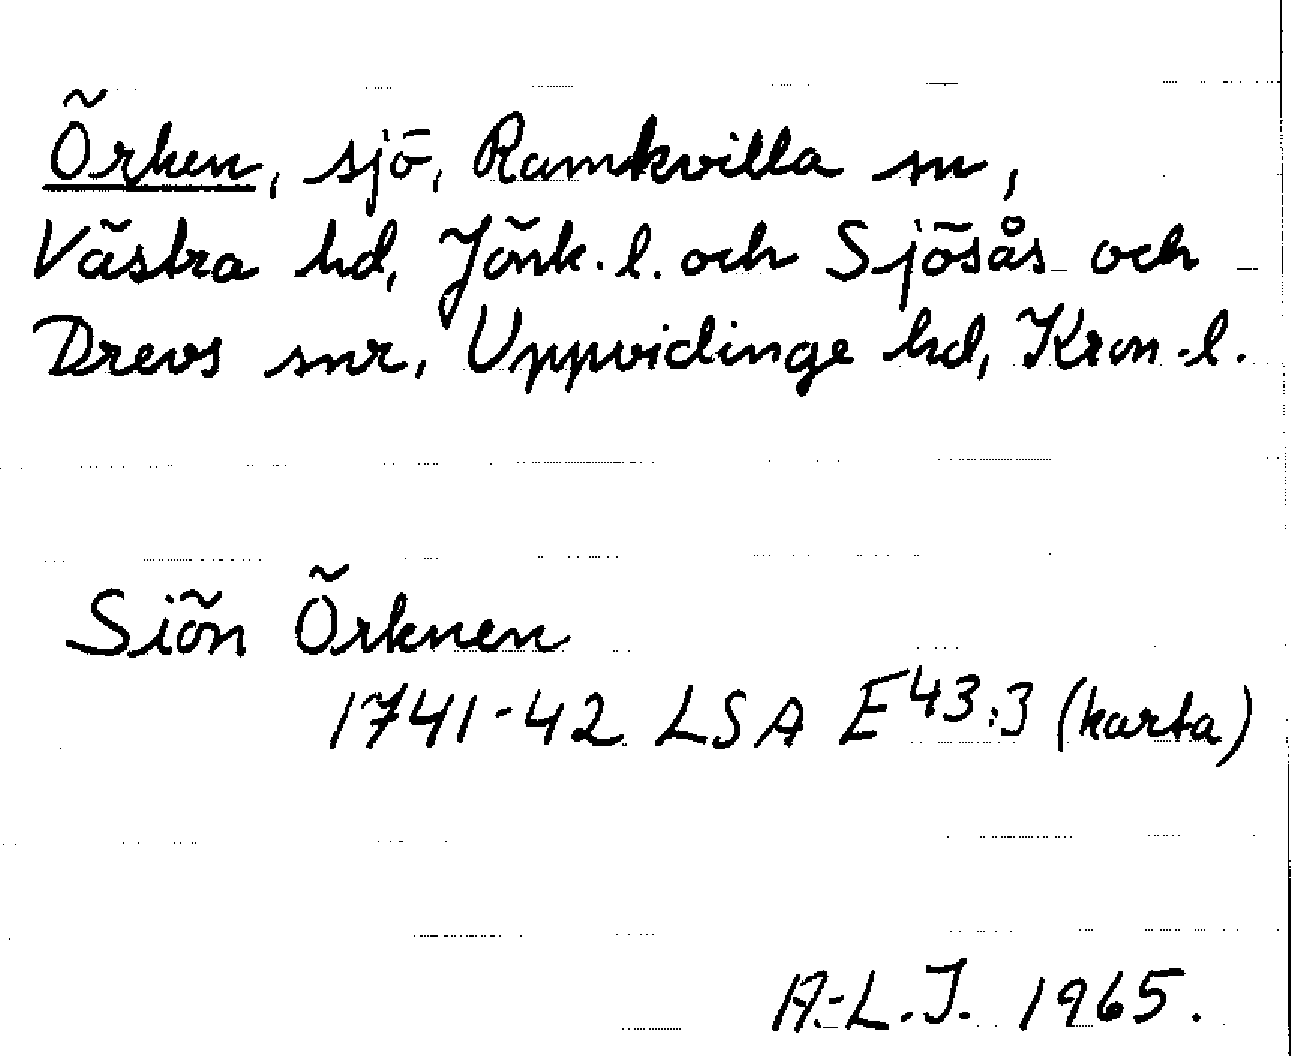 Örken, sjö, Ramkvilla sn,
Västra hd, Jönk. l. och Sjösås och
Drevs snr, Uppvidinge hd, Kron. l.
Siön Örknen
1741-42 LSA E43:3 (karta)
A.-L.J. 1965.